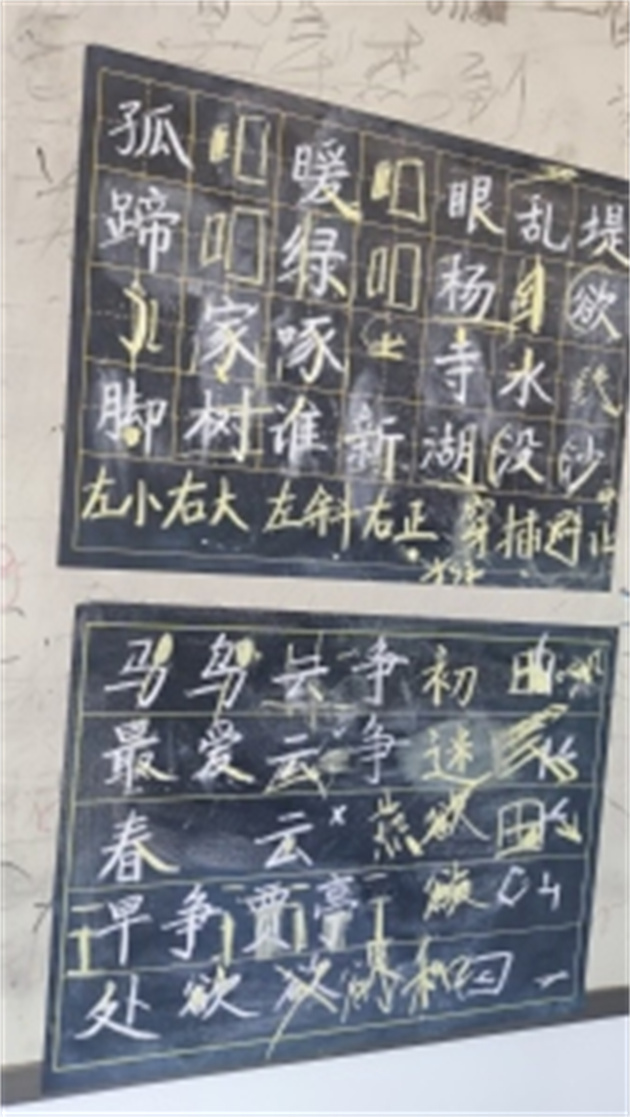 孤 暖 眼 乱 堤
蹄 绿 杨 欲
家 啄 寺 水 浅
脚 树 谁 新 湖 没 沙
左小右大 左斜右正 穿插
马 鸟 云 争 初
最 爱 云 争 迷
春 云 × 欲 田
早 争 贾 亭
处 欲 欲